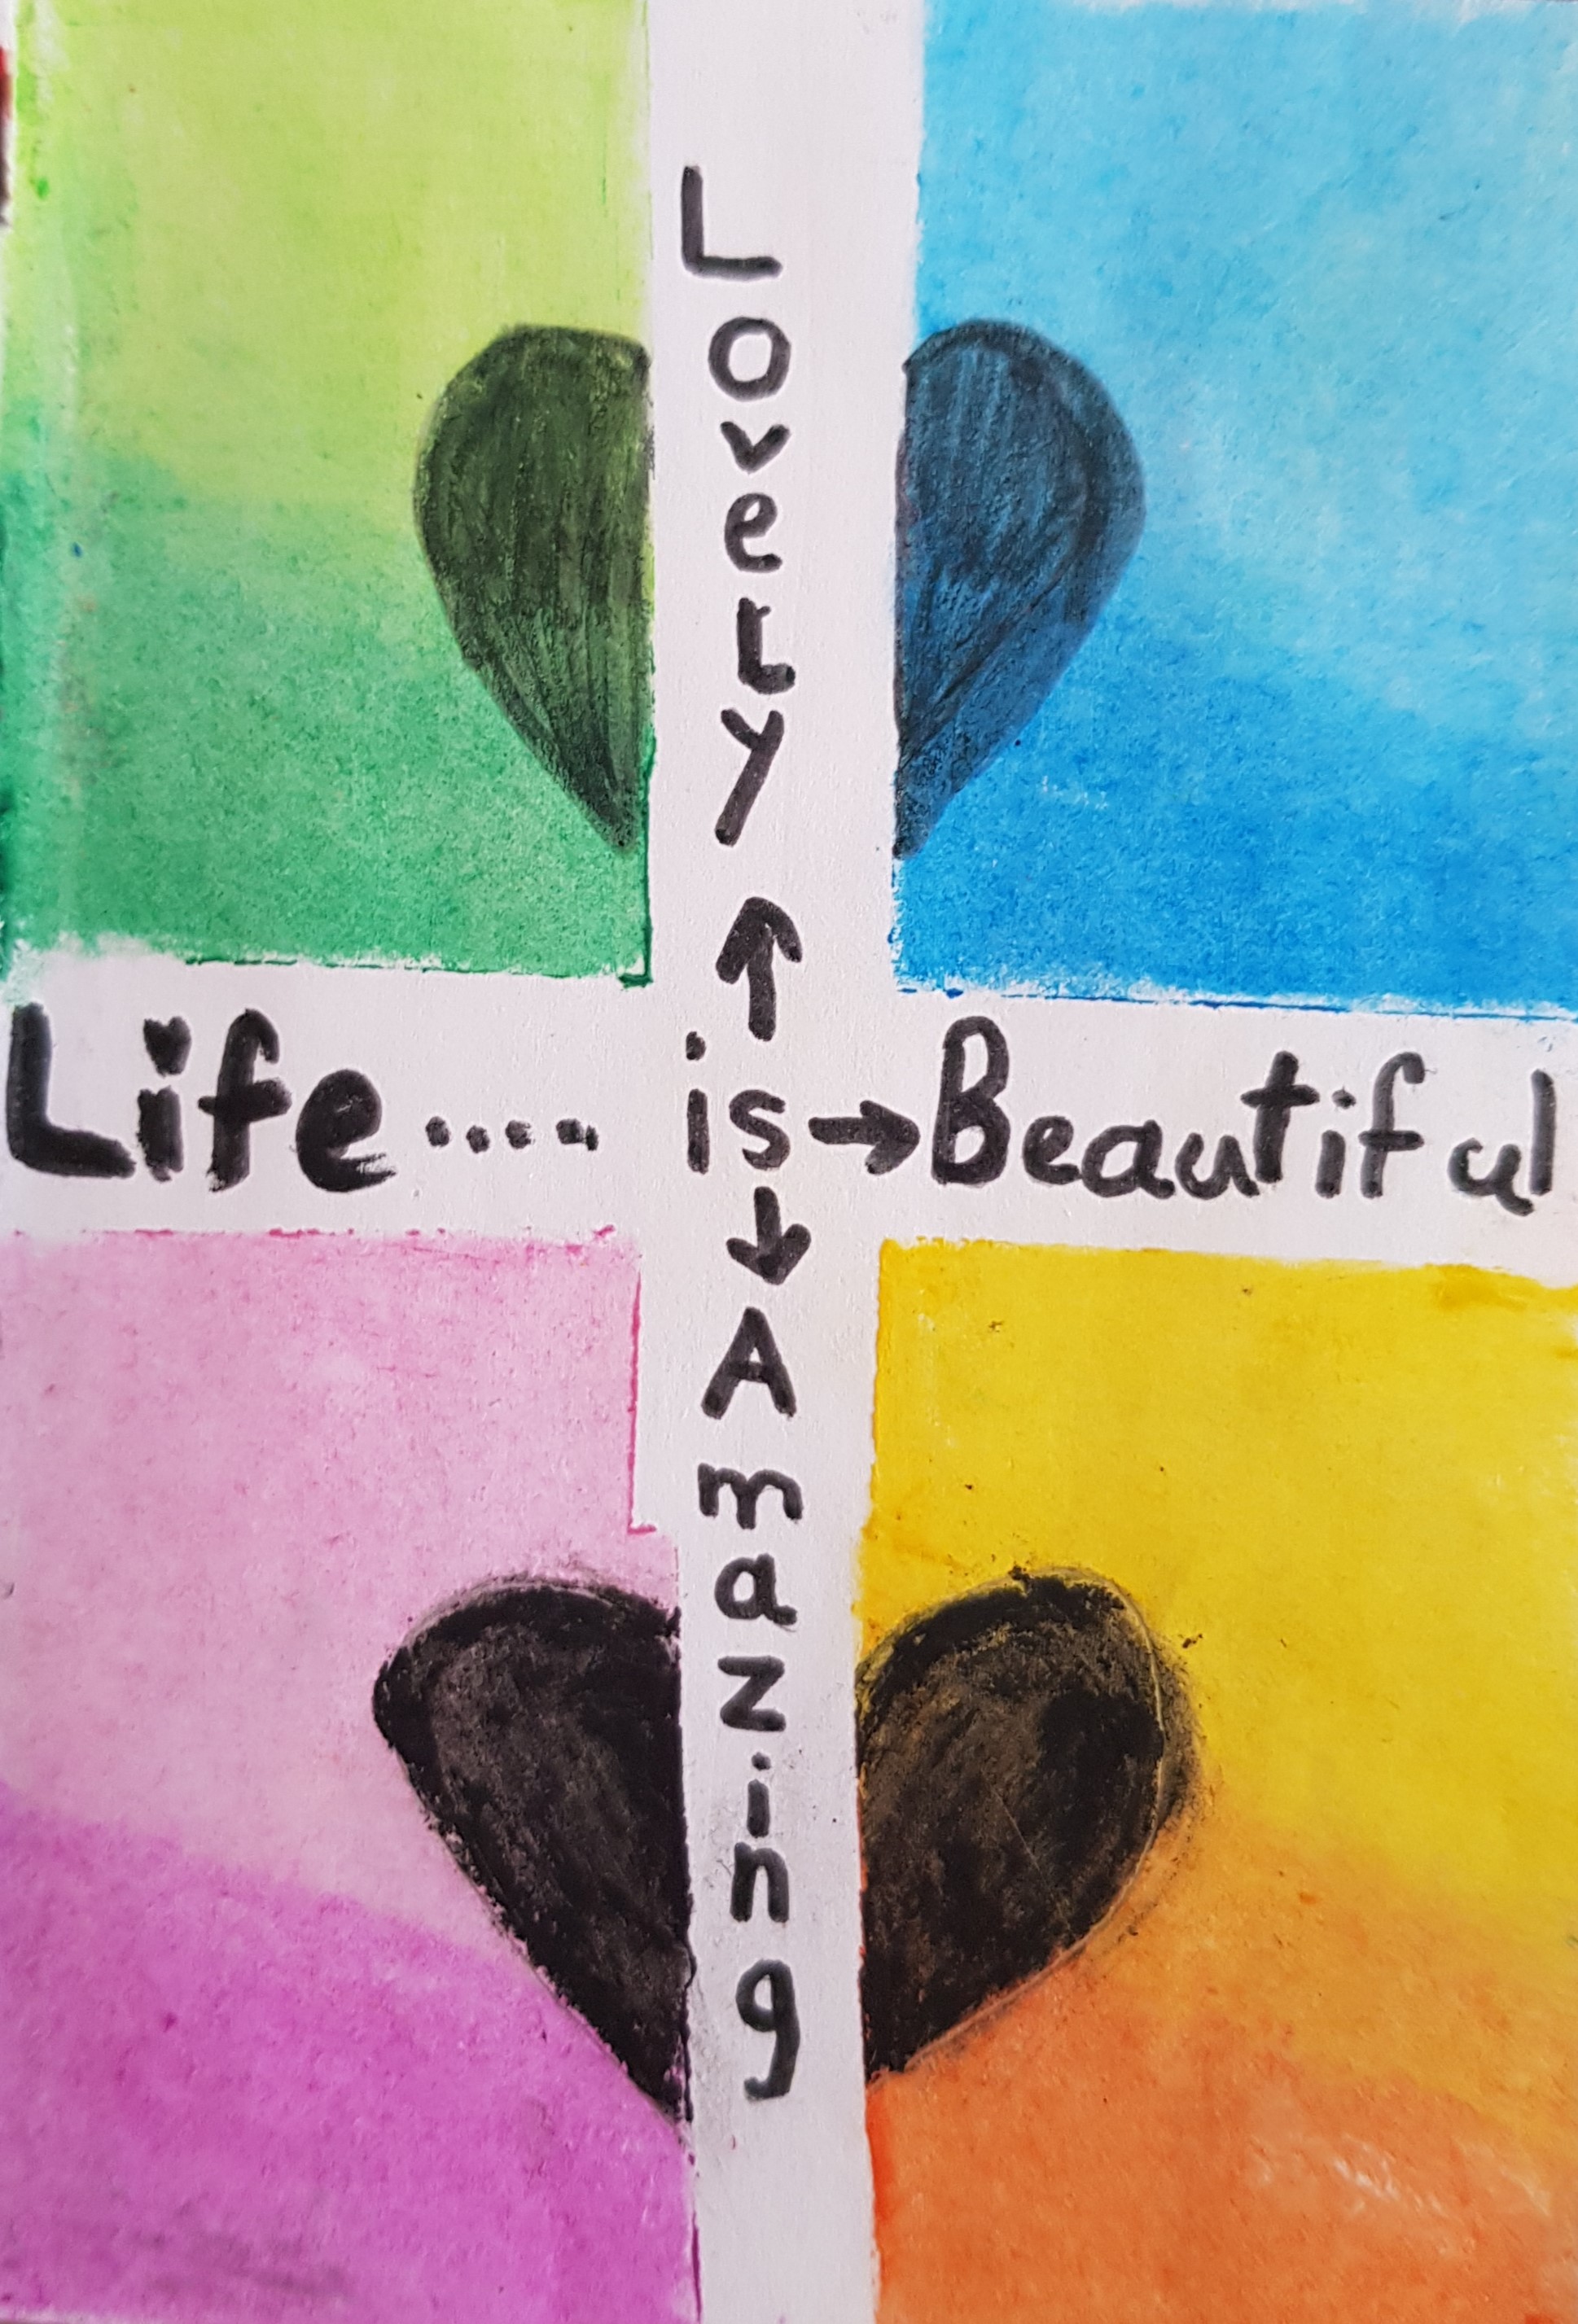 Lovely
↑
Life.... is → Beautiful
↓
Amazing